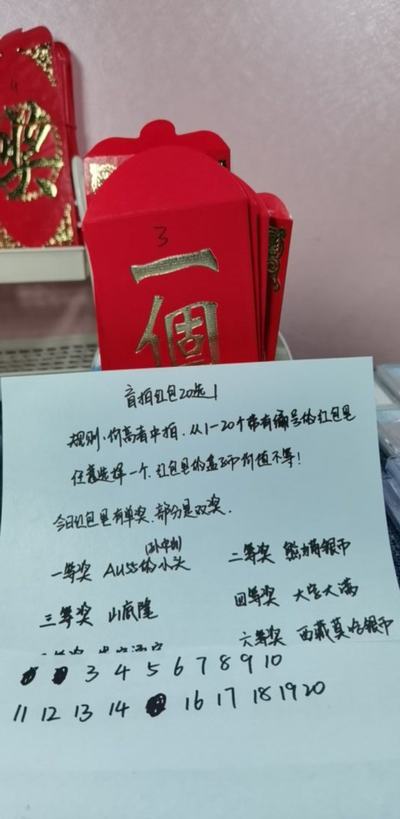 3
一個
盲拍红包20选1
规则、价高者中拍、从1-20个带有编号的红包里
任意选择一个、红包里的盖币价值不等！
今日红包里有单奖、部分是双奖、
一等奖 AU55的小头
二等奖 熊猫银币
三等奖 山底隆
四等奖 大宝大满
六等奖 西藏真
3 4 5 6 7 8 9 10
11 12 13 14 16 17 18 19 20